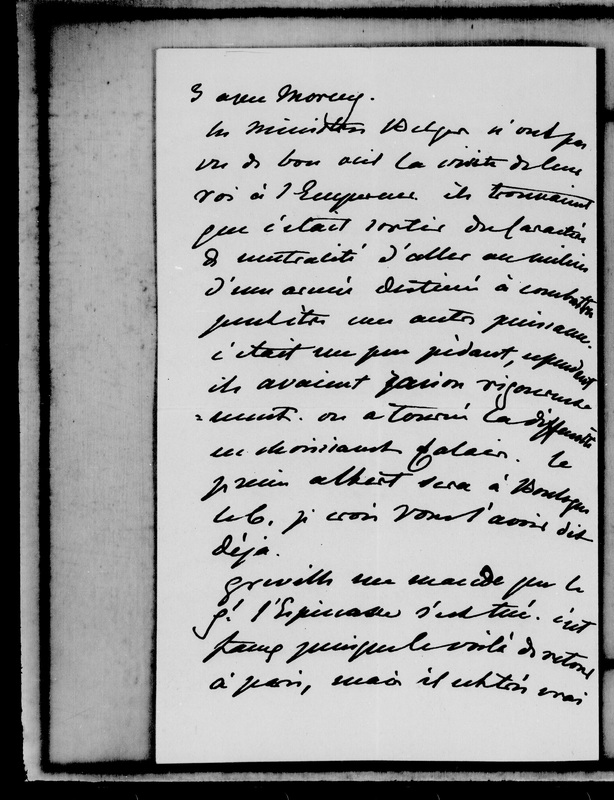 3 avec Morny.
les ministres Belges n'ont pas
vu de bon oeil la visite de leur
roi à l'Empereur. ils trouvaient
que c'était sortir du caractère
de neutralité d'aller au milieu
d'une armée destinée à combattre
peut être une autre puissance.
c'était un peu pédant, cependant
ils avaient raison rigoureuse
=ment. on a tourné la difficulté
en choisissant Calais. le
prince albert sera à Boulogne
le 6. je crois vous l'avoir dit
déjà.
greville me mande que le
gl. l'Espinasse s'est tué. c'est
faux puisque le voilà de retour
à paris, mais il est très vrai